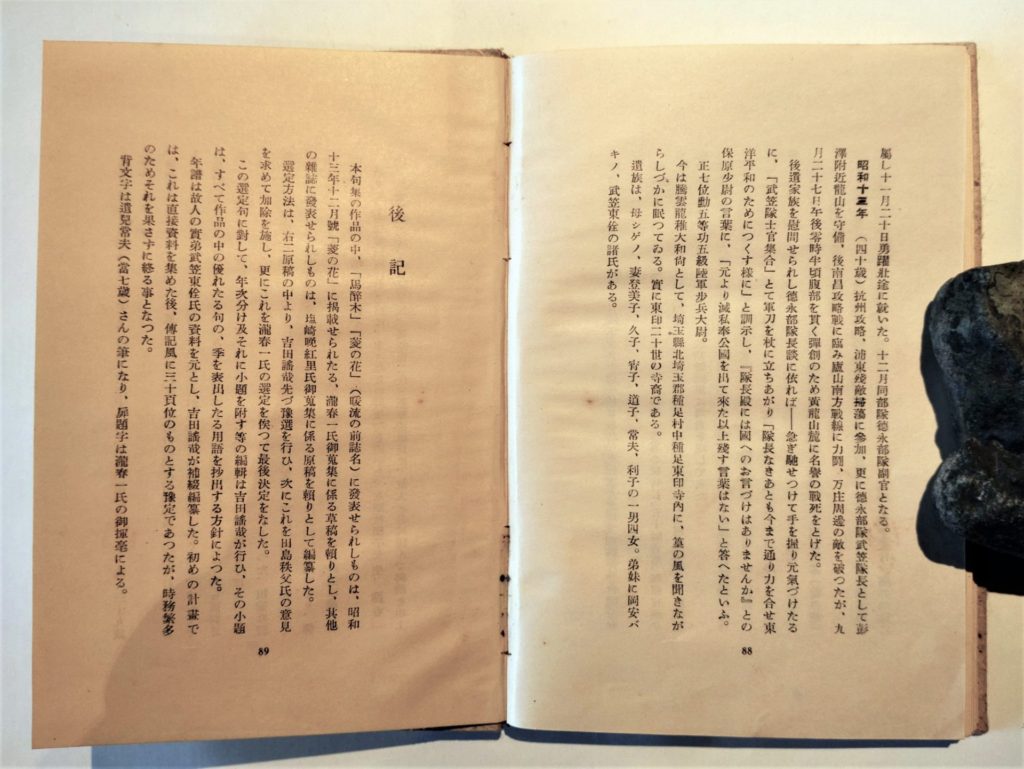 屬し十一月二十日勇躍壯途に就いた。十二月同部隊德永部隊副官となる。
昭和十三年 (四十歲)杭州攻略、浦東殘敵掃蕩に參加、更に德永部隊武笠隊長として彭
澤附近龍山を守備、後南昌攻略戰に臨み廬山南方戰線に力鬪、万庄周邊の敵を破つたが、九
月二十七日午後零時半頃腹部を貫く彈創のため黃龍山麓に名譽の戰死をとげた。
後遺家族を慰問せられし德永部隊長談に依れば――急ぎ馳せつけて手を握り元氣づけたる
に、「武笠隊士官集合」とて軍刀を杖に立ちあがり『隊長なきあとも今まで通り力を合せ東
洋平和のためにつくす樣に』と訓示し、『隊長殿には國へのお言づけはありませんか』との
保原少尉の言葉に、『元より滅私奉公國を出て來た以上殘す言葉はない』と答へたといふ。
正七位勳五等功五級陸軍步兵大尉。
今は騰雲龍稚大和尙として、埼玉縣北埼玉郡種足村中種足東印寺內に、篁の風を聞きなが
らしづかに眠つてゐる。實に東印二十世の寺裔である。
遺族は、母シゲノ、妻登美子、久子、宵子、道子、常夫、利子の一男四女。弟妹に岡安バ
キノ、武笠東雀の諸氏がある。
88
後記
本句集の作品の中、「馬醉木」「菱の花」(暖流の前誌名)に發表せられしものは、昭和
十三年十二月號「菱の花」に揭載せられたる、瀧春一氏御蒐集に係る草稿を賴りとし、其他
の雜誌に發表せられしものは、塩崎晩紅里氏御蒐集に係る原稿を賴りとして編纂した。
選定方法は、右二原稿の中より、吉田謠哉先づ豫選を行ひ、次にこれを田島秩父氏の意見
を求めて加除を施し、更にこれを瀧春一氏の選定を俟つて最後決定をなした。
この選定句に對して、年次分け及それに小題を附す等の編輯は吉田謠哉が行ひ、その小題
は、すべて作品の中の優れたる句の、季を表出したる用語を抄出する方針によつた。
年譜は故人の實弟武笠東雀氏の資料を元とし、吉田謠哉が補綴編纂した。初めの計畫で
は、これは直接資料を集めた後、傳記風に三十頁位のものとする豫定であつたが、時務繁多
のためそれを果さずに終る事となつた。
背文字は遺兒常夫(當七歲)さんの筆になり、扉題字は瀧春一氏の御揮毫による。
89